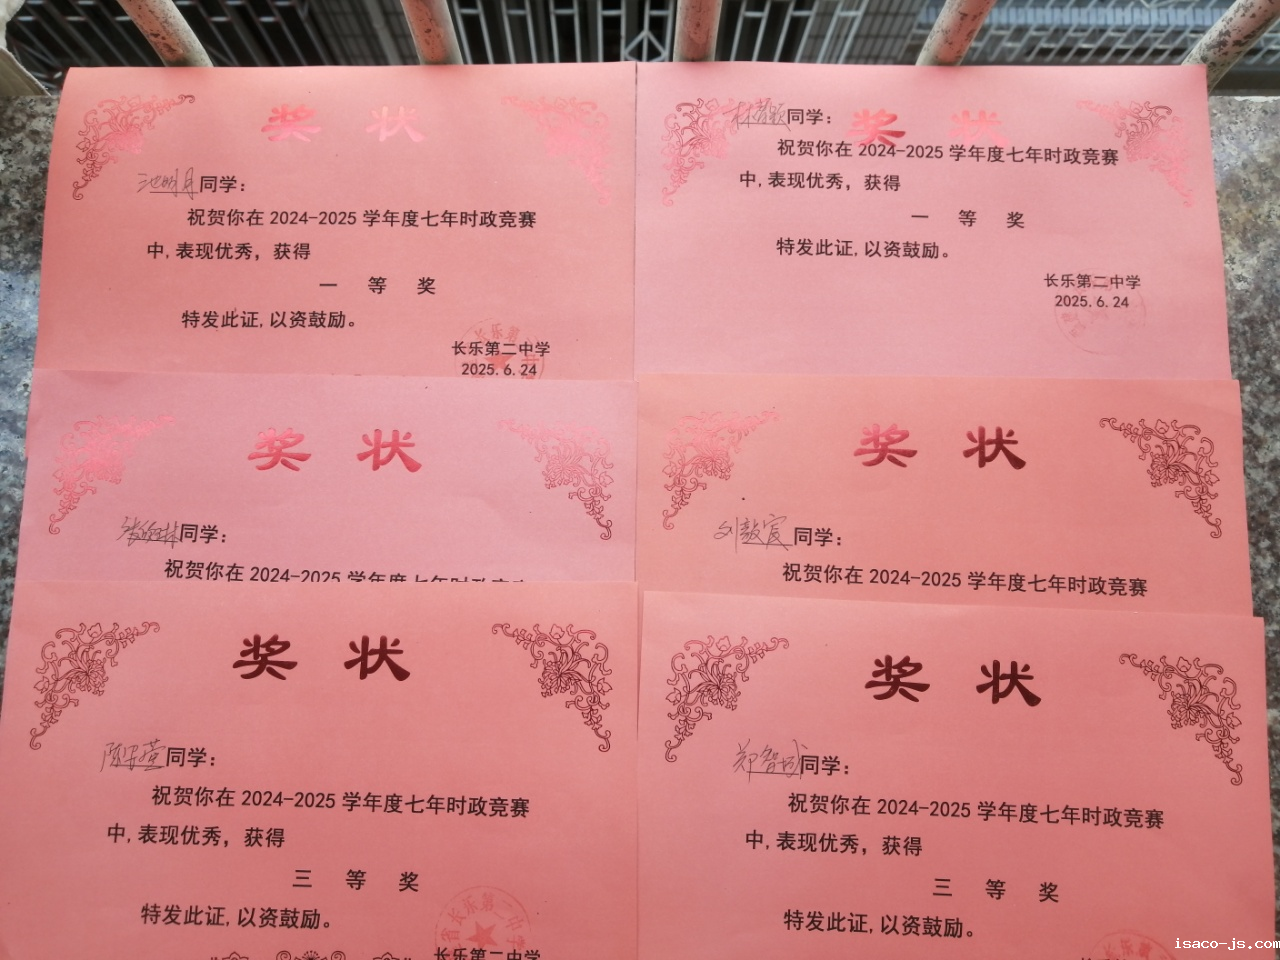 奖 状
池明月同学：
祝贺你在 2024-2025 学年度七年时政竞赛
中，表现优秀，获得
一 等 奖
特发此证，以资鼓励。
长乐第二中学
2025.6.24
奖 状
同学：
祝贺你在 2024-2025 学年度七年时政竞赛
中，表现优秀，获得
一 等 奖
特发此证，以资鼓励。
长乐第二中学
2025.6.24
奖 状
同学：
祝贺你在 2024-2025 学年度七年时政竞赛
奖 状
同学：
祝贺你在 2024-2025 学年度七年时政竞赛
奖 状
同学：
祝贺你在 2024-2025 学年度七年时政竞赛
中，表现优秀，获得
三 等 奖
特发此证，以资鼓励。
长乐第二中学
奖 状
郑智城同学：
祝贺你在 2024-2025 学年度七年时政竞赛
中，表现优秀，获得
三 等 奖
特发此证，以资鼓励。
isaco-js.com